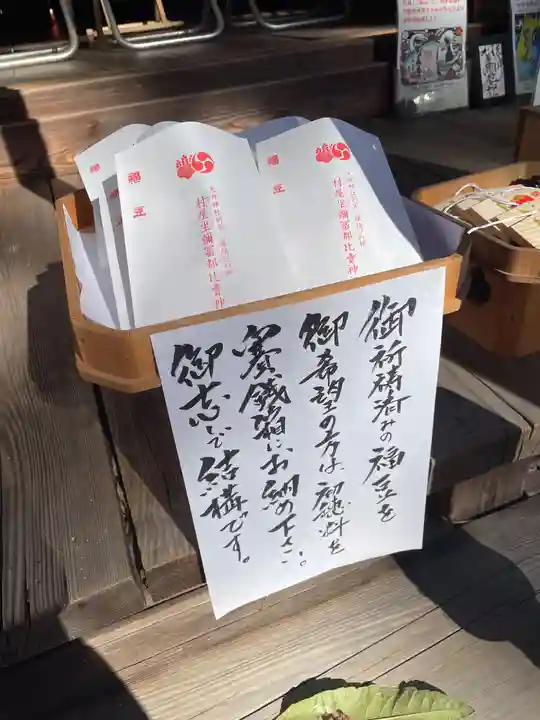 御祈祷済みの福豆を
御希望の方は初穂料を
賽銭箱にお納め下さい。
御志で結構です。
福豆
村屋坐彌冨都比賣神
福豆
村屋坐彌冨都比賣神